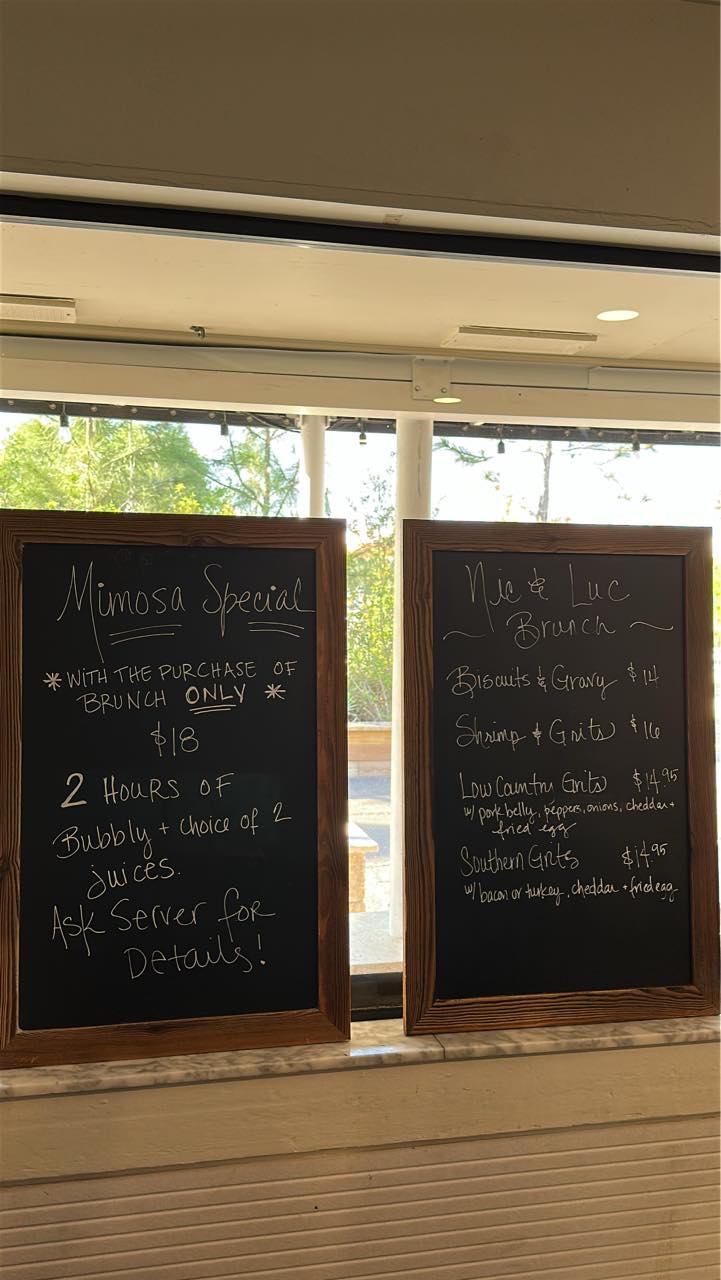 Mimosa Special
*WITH THE PURCHASE OF
BRUNCH ONLY *
$18
2 HOURS OF
Bubbly + choice of 2
juices.
Ask Server for
Details!
Nic & Luc
~ Brunch ~
Biscuits & Gravy $14
Shrimp & Grits $16
Low Country Grits $14.95
w/ pork belly, peppers, onions, cheddar +
fried egg
Southern Grits $14.95
w/ bacon or turkey, cheddar + fried egg